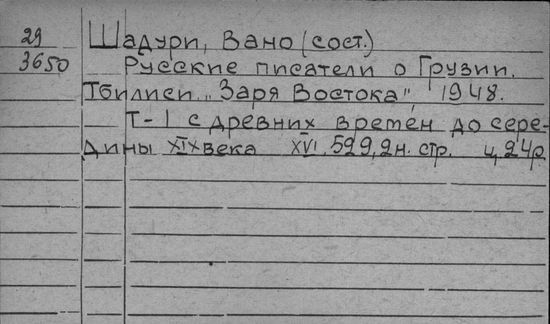 29
3650
Шадури, Вано (сост.)
Русские писатели о Грузии.
Тбилиси. „Заря Востока", 1948.
Т-I с древних времен до сере-
дины XIX века XVI, 529, 2 н. стр. ц. 24 р.